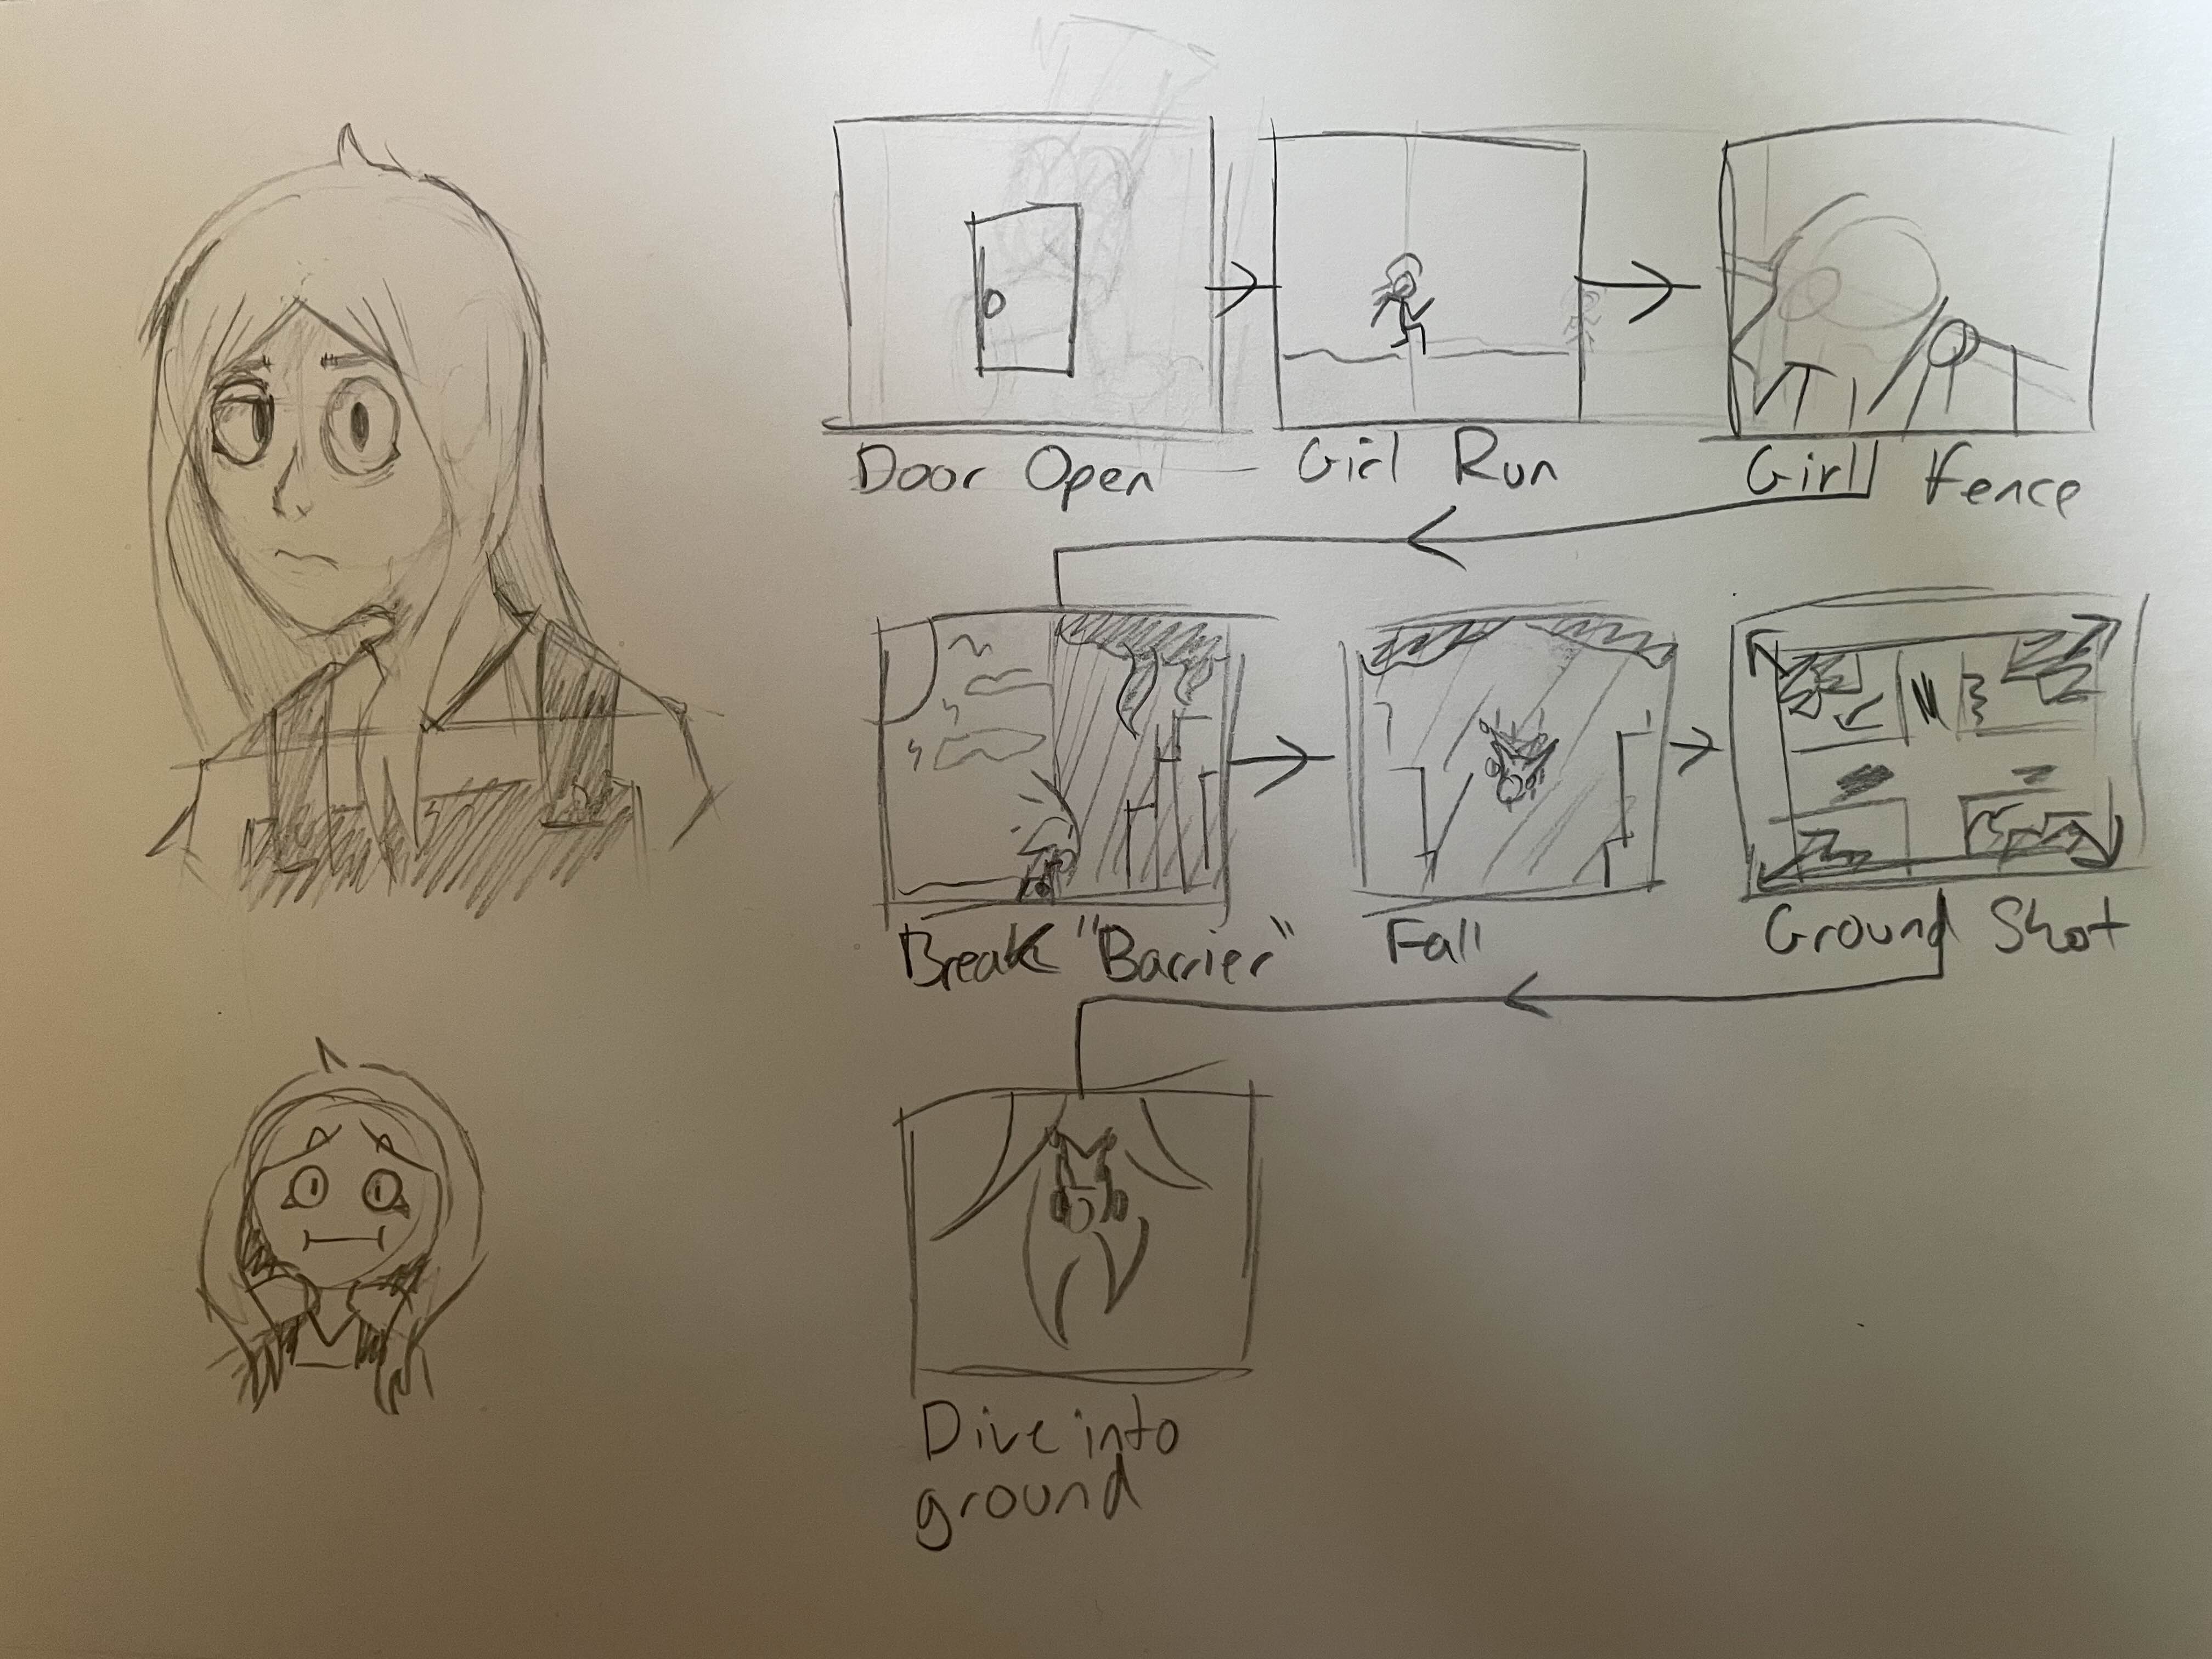 Door Open
Girl Run
Girl Fence
Break "Barrier"
Fall
Ground Shot
Dive into
ground